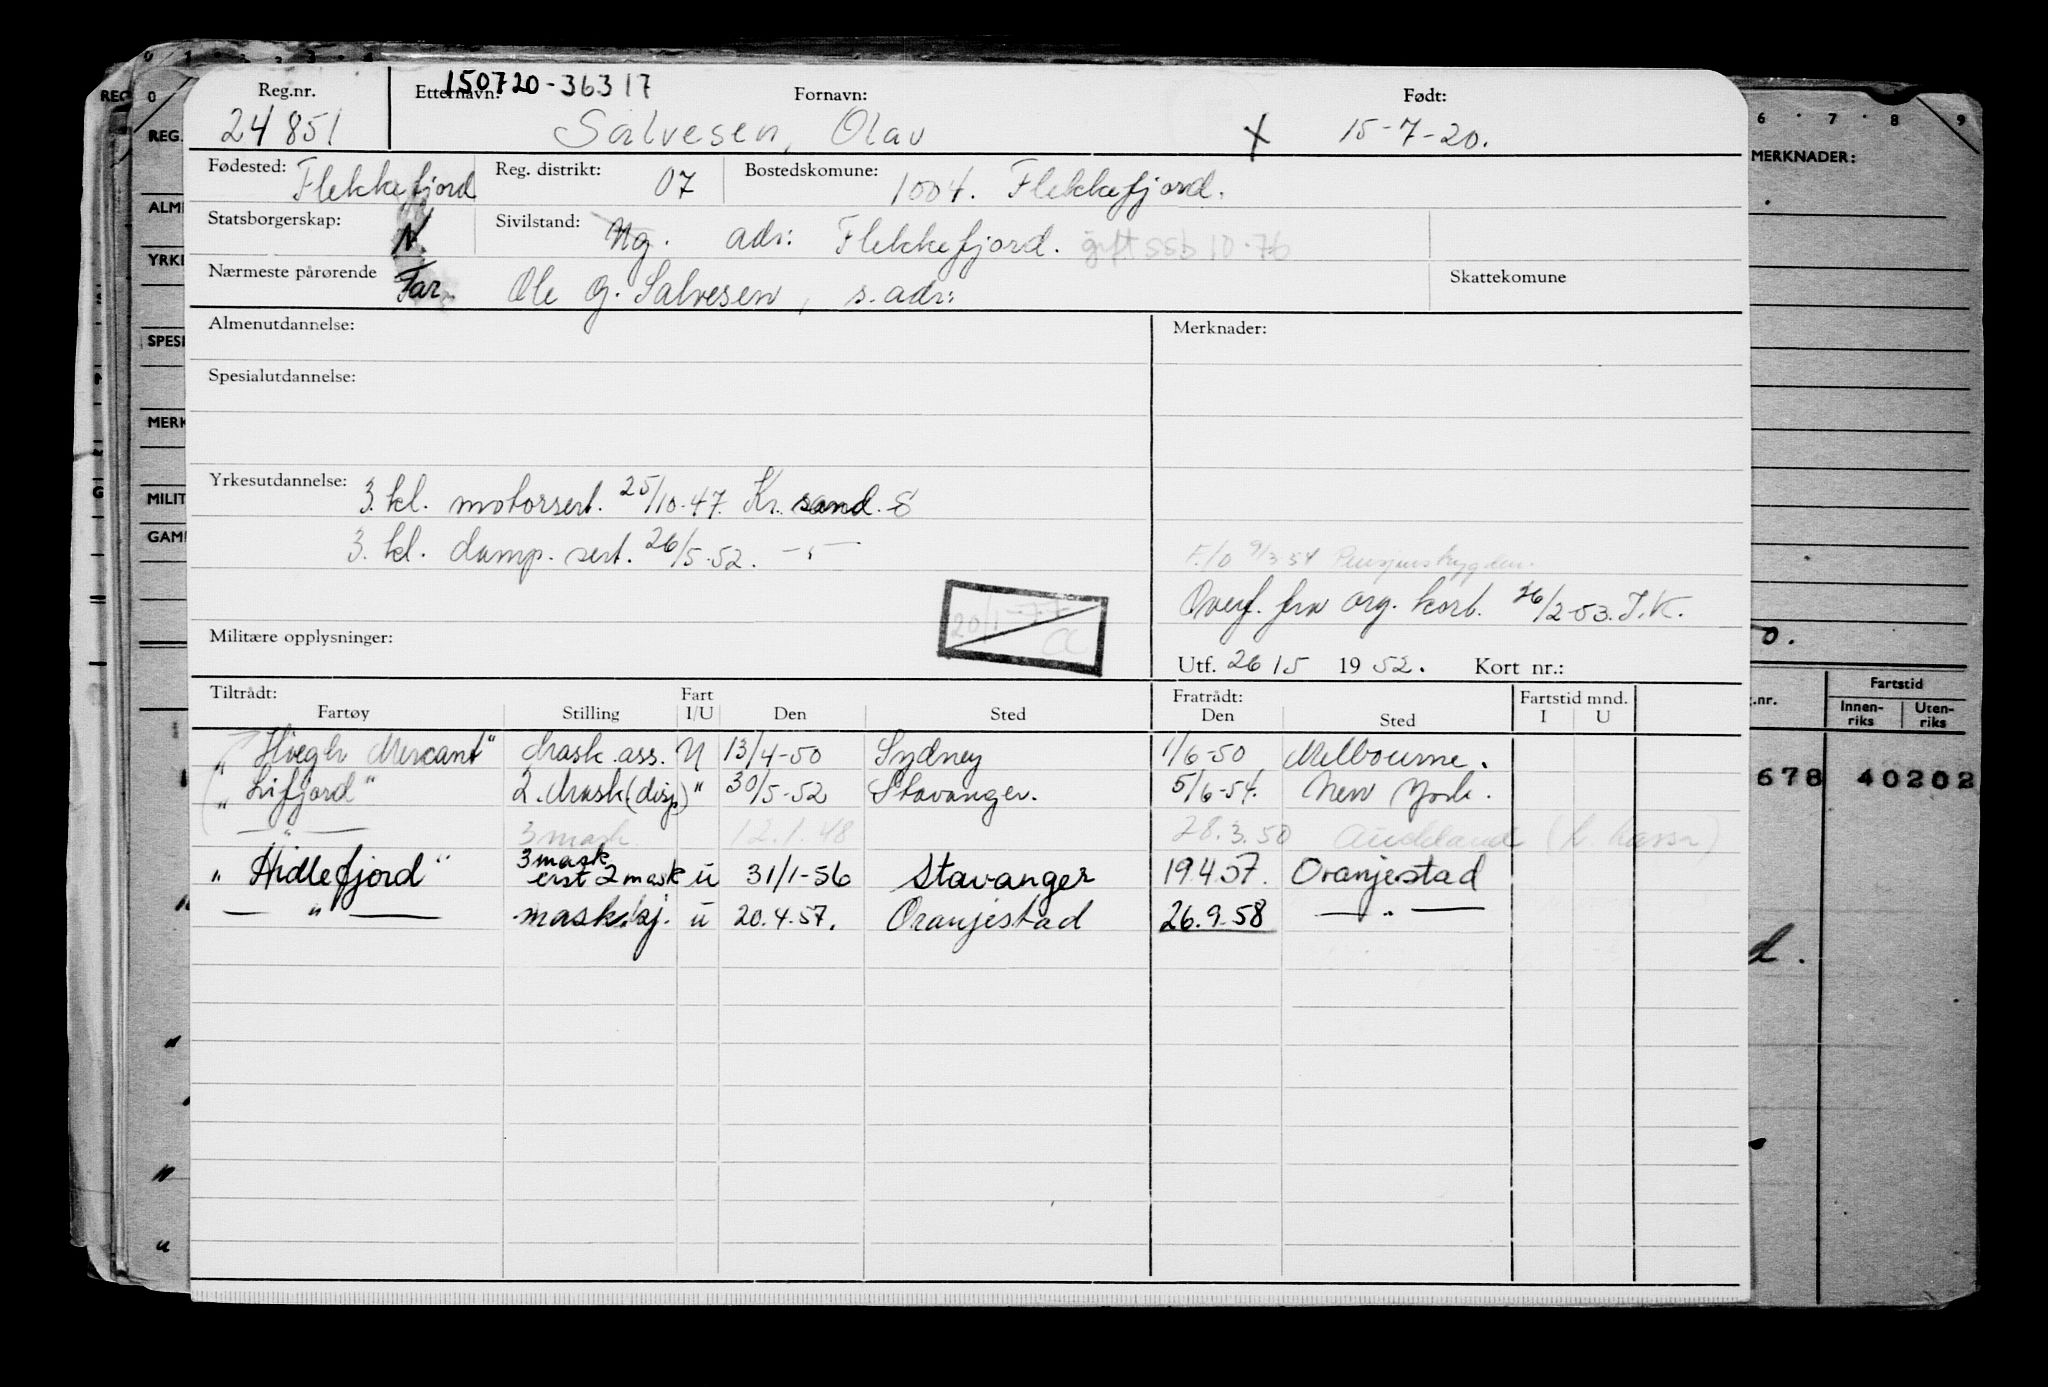 150720-36317
Reg.nr. Etternavn: Fornavn: Født:
24851 Salvesen, Olav X 15-7-20.
Fødested: Flekkefjord Reg. distrikt: 07 Bostedskomune: 1004. Flekkefjord.
Statsborgerskap: N. Sivilstand: Ug. adr: Flekkefjord. gift ssb 10.76
Nærmeste pårørende Far. Ole G. Salvesen, s. adr: Skattekomune
Almenutdannelse: Merknader:
Spesialutdannelse:
Yrkesutdannelse: 3. kl. motorsert. 25/10-47. Kr. sand. S
3. kl. damp. sert. 26/5-52. —"—
F/O 9/3 54 Pensjonstrygden.
Overf. fra org. kort. 26/2-53. J.K.
20/1-77 a
Militære opplysninger:
Utf. 26/5 1952. Kort nr.:
Tiltrådt: Fratrådt: Fartstid mnd.
Fartøy Stilling Fart I/U Den Sted Den Sted I U
"Høegh Mercant" Mask. ass. U 13/4-50 Sydney 1/6-50 Melbourne.
"Lifjord" 2. Mask (disp) " 30/5-52 Stavanger. 5/6-54. New York.
—"— 3 mask. 12.1.48 28.3.50 Auckland
"Hidlefjord" 3 mask erst 2 mask u 31/1-56 Stavanger 19.4.57. Oranjestad
—"— mask. u 20.4.57. Oranjestad 26.9.58 —"—
REG.
ALM
YRKE
SPESI
MERK
MILIT
GAM
6 7 8 9
MERKNADER:
0.
.nr. Fartstid
Innen-riks Uten-riks
678 40202
d.